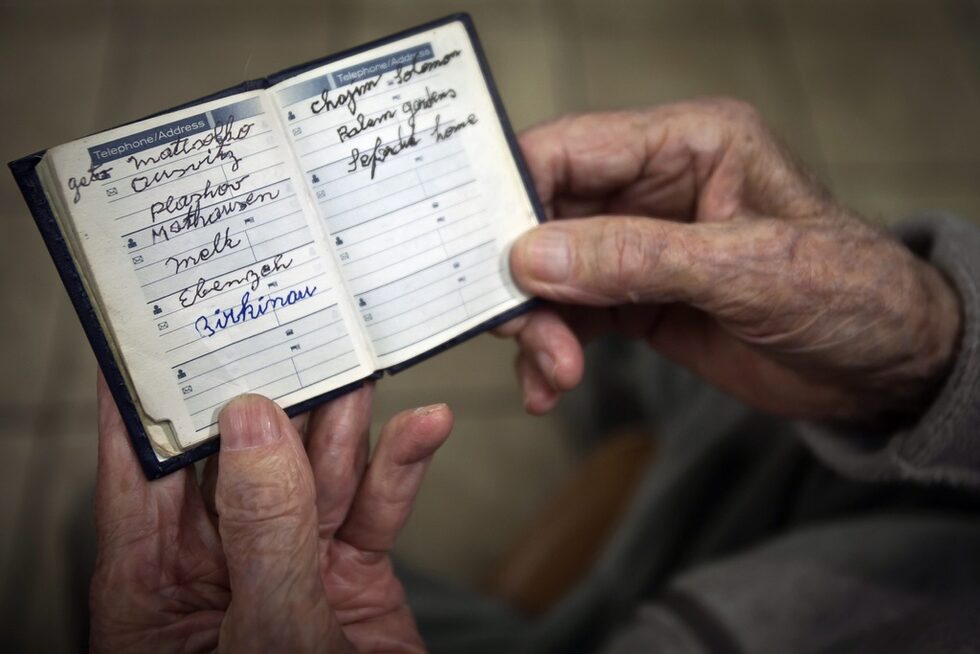 Telephone/Address
geto Mattrolfho
Ausvitz
Plazhov
Mathausen
Melk
Ebenzeh
Birkinau
Telephone/Address
Chajim Solomon
Palem gardens
Sefardic home